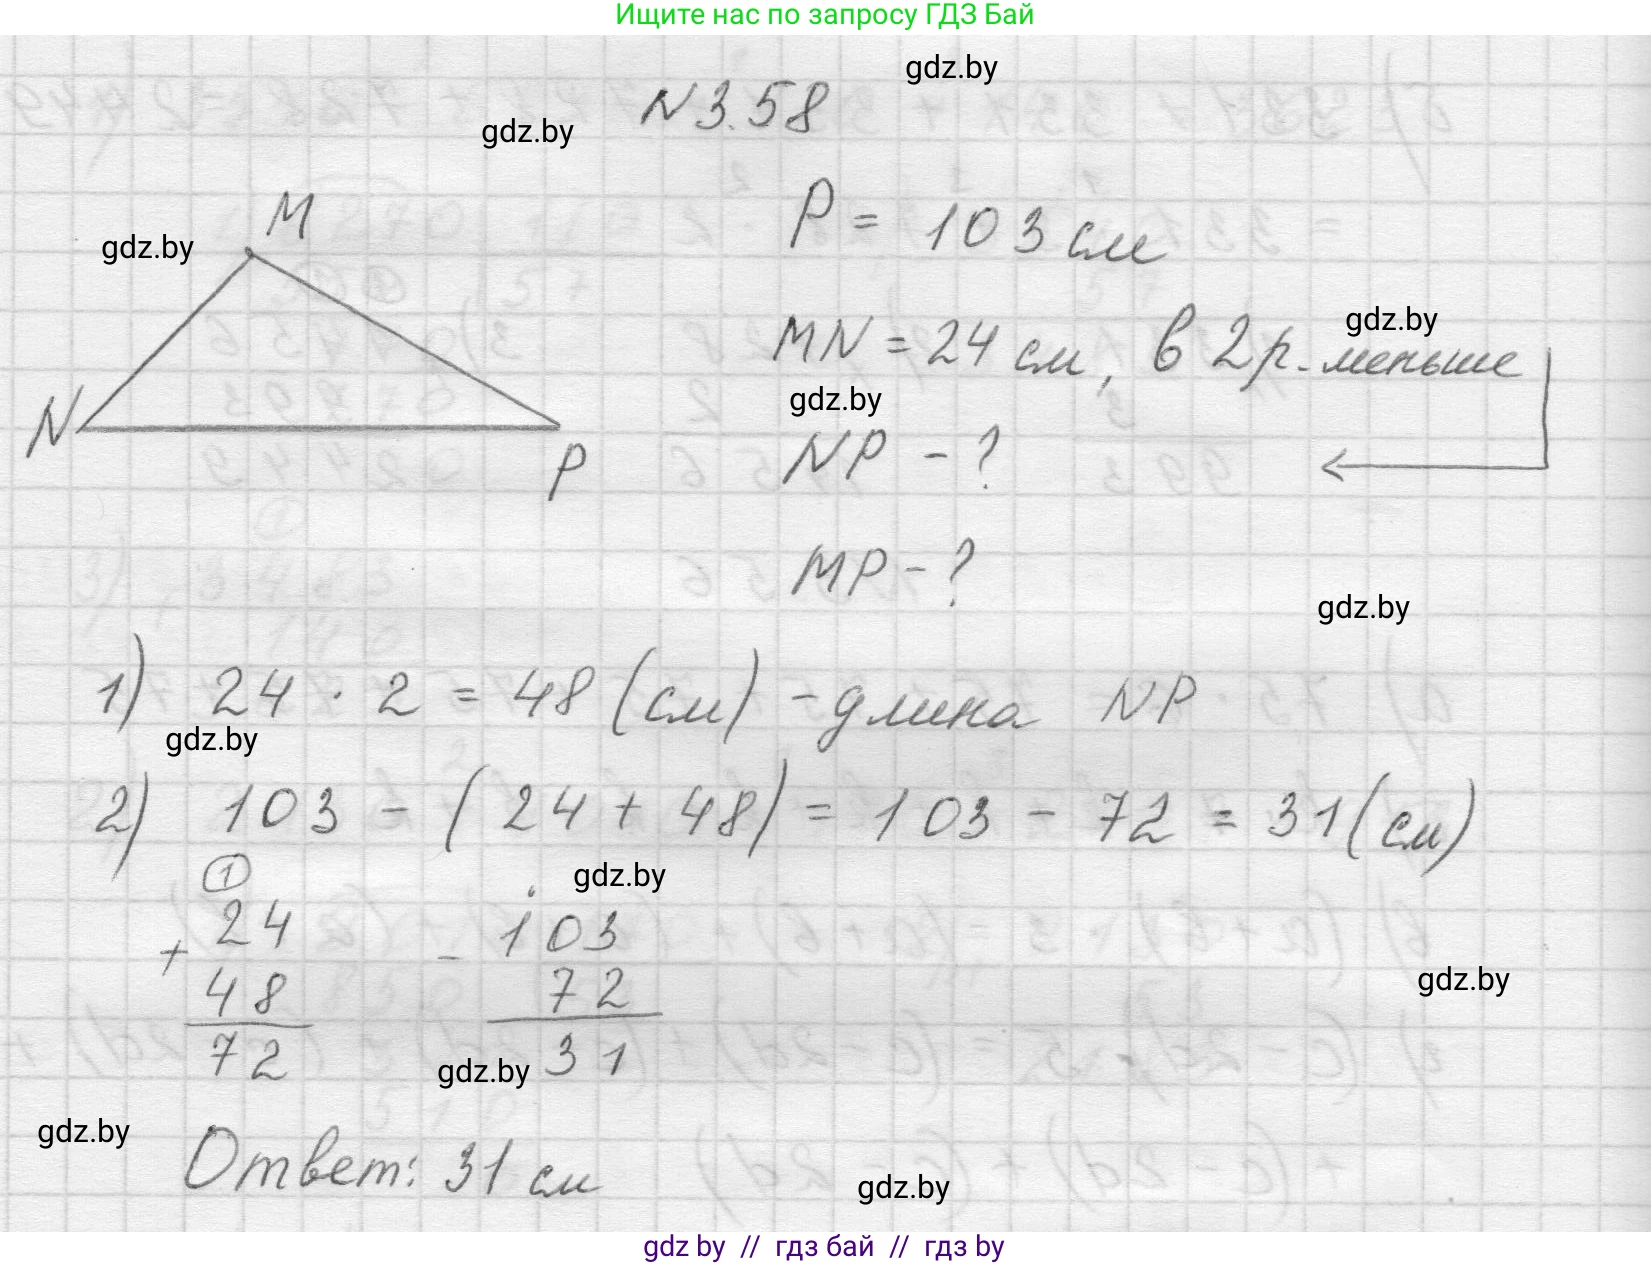 Ищите нас по запросу ГДЗ Бай
gdz.by
N3.58
gdz.by
M
P = 103 см
gdz.by
gdz.by
MN = 24 см, в 2 р. меньше
gdz.by
N
NP - ?
P
MP - ?
gdz.by
1) 24 · 2 = 48 (см) - длина NP
gdz.by
2) 103 - (24 + 48) = 103 - 72 = 31 (см)
gdz.by
1
+ 24
48
72
- 103
72
31
gdz.by
gdz.by
gdz.by
Ответ: 31 см
gdz.by
gdz by // гдз бай // гдз by